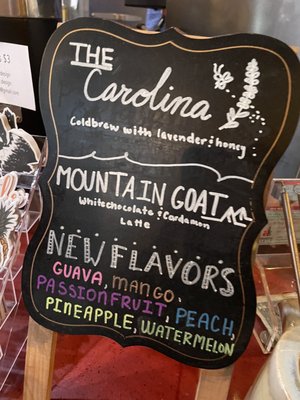 THE
Carolina
Coldbrew with lavender & honey
MOUNTAIN GOAT
Whitechocolate & Cardamon
Latte
NEW FLAVORS
GUAVA, MANGO,
PASSIONFRUIT, PEACH,
PINEAPPLE, WATERMELON
$3